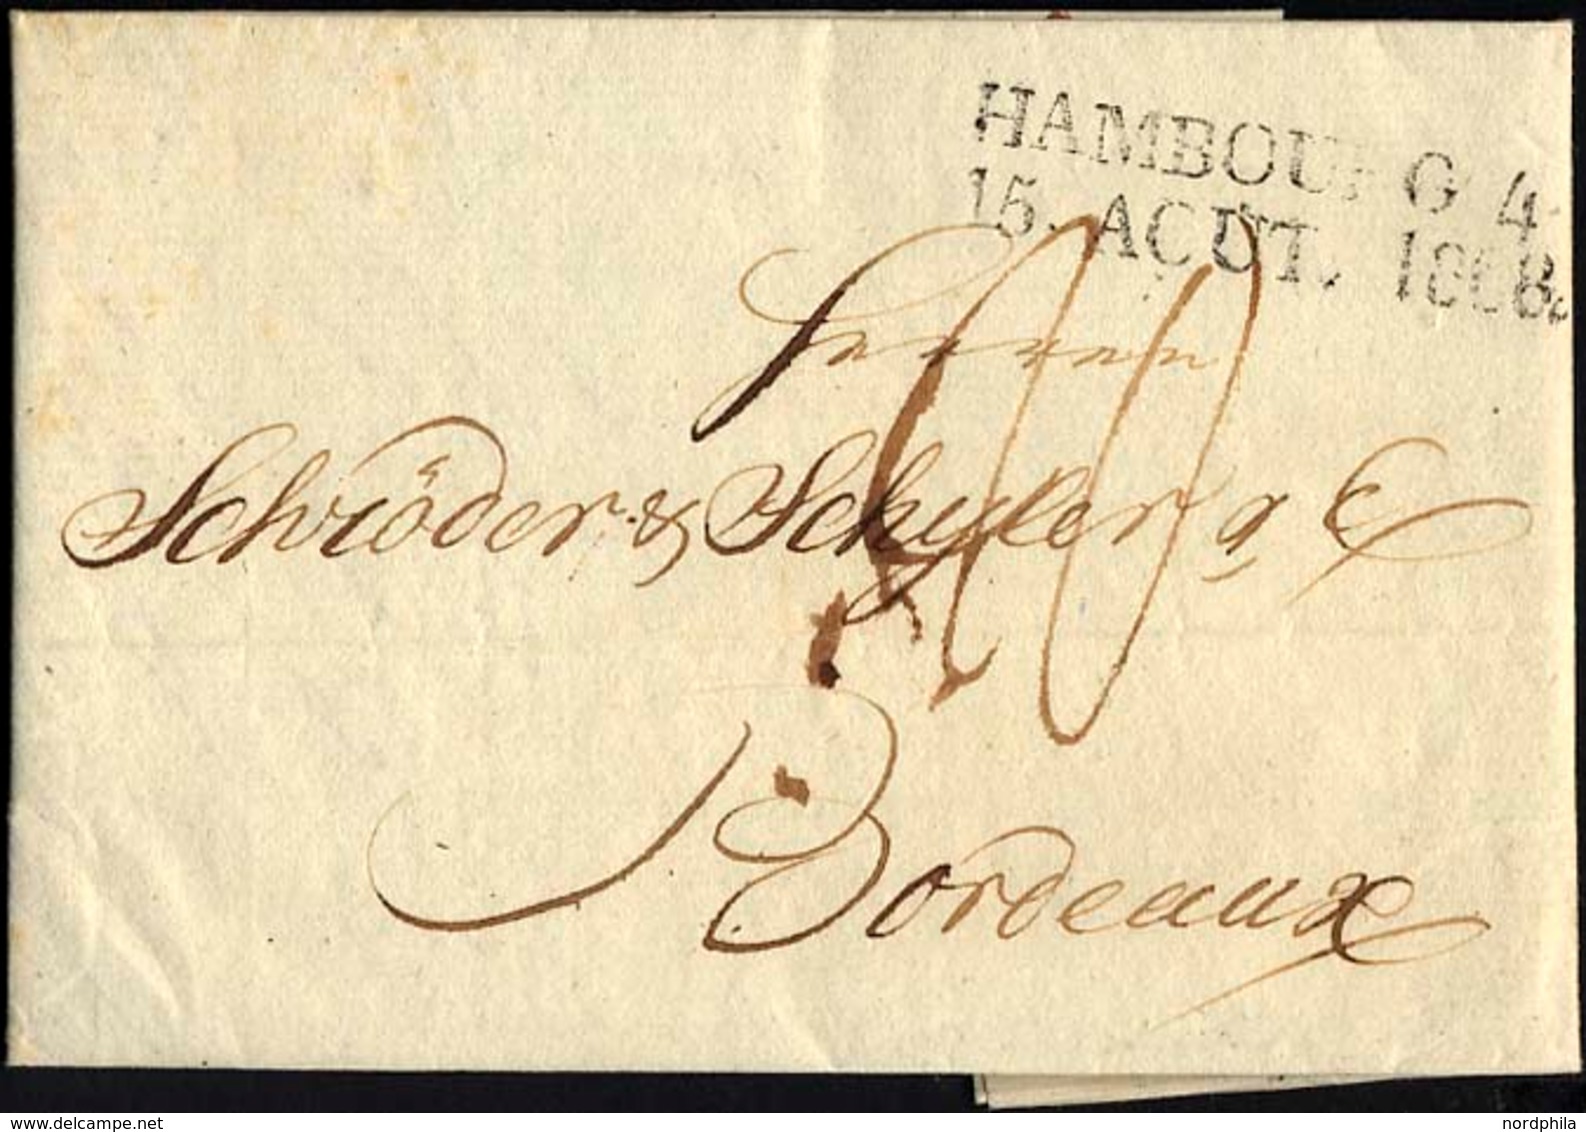 HAMBOURG 4
15. AOUT. 1808.
Herren
Schröder & Schyler & C
Bordeaux
www.delcampe.net
nordphila